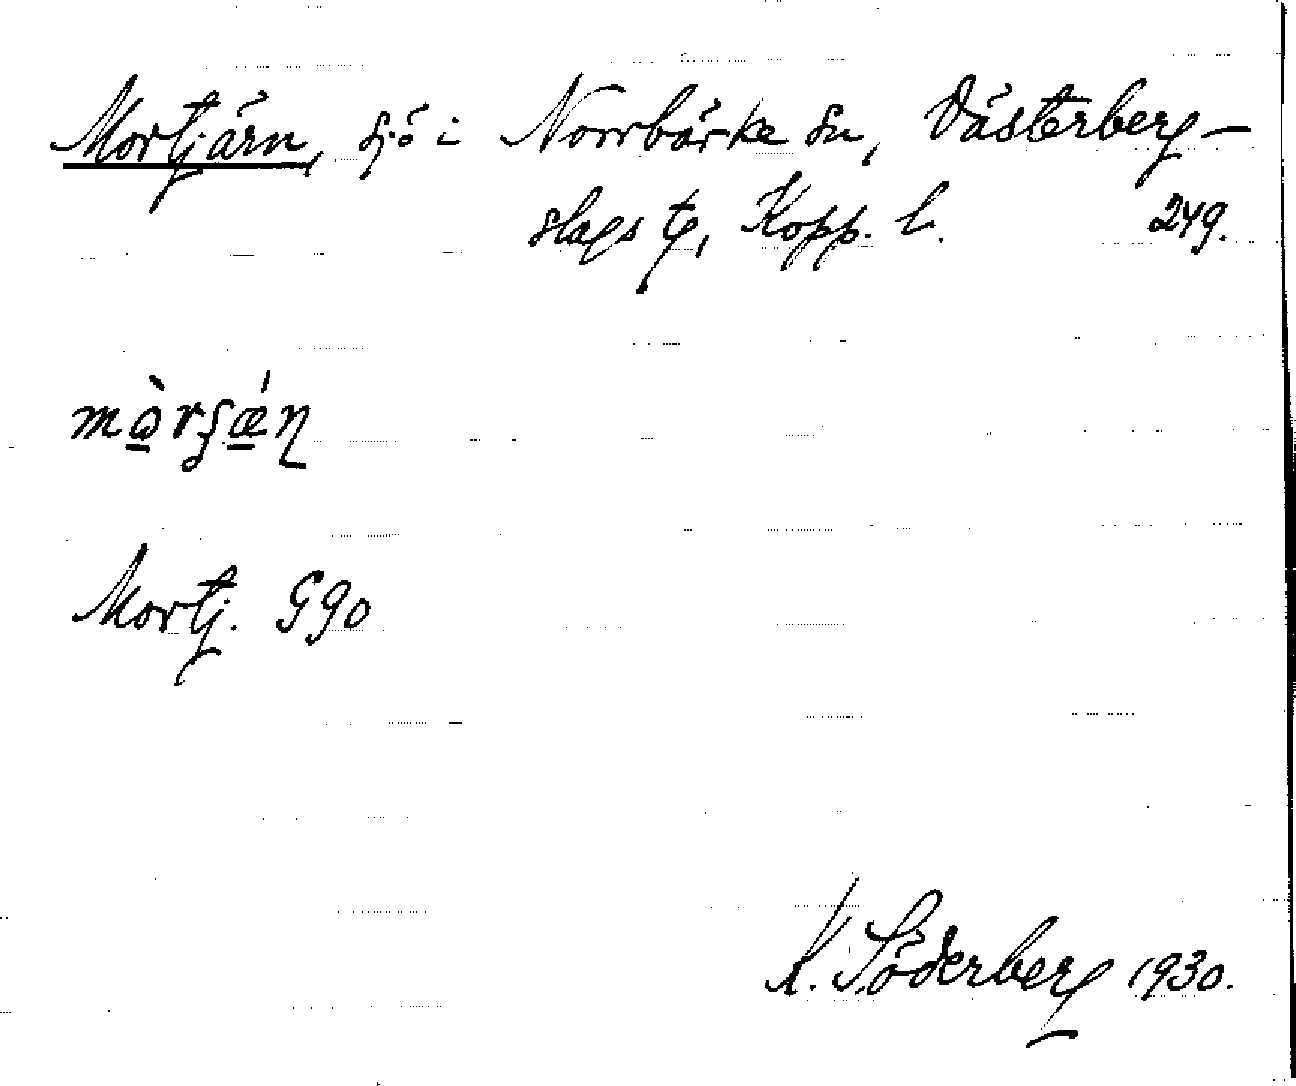 Mortjärn, sjö i Norrbärke sn, Västerberg-
slags tg, Kopp. l. 249.
Mortj. G90
K. Söderberg 1930.